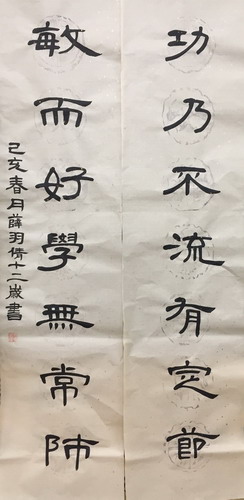 功乃不流有定節
敏而好學無常師
己亥春月薛羽倩十二歲書